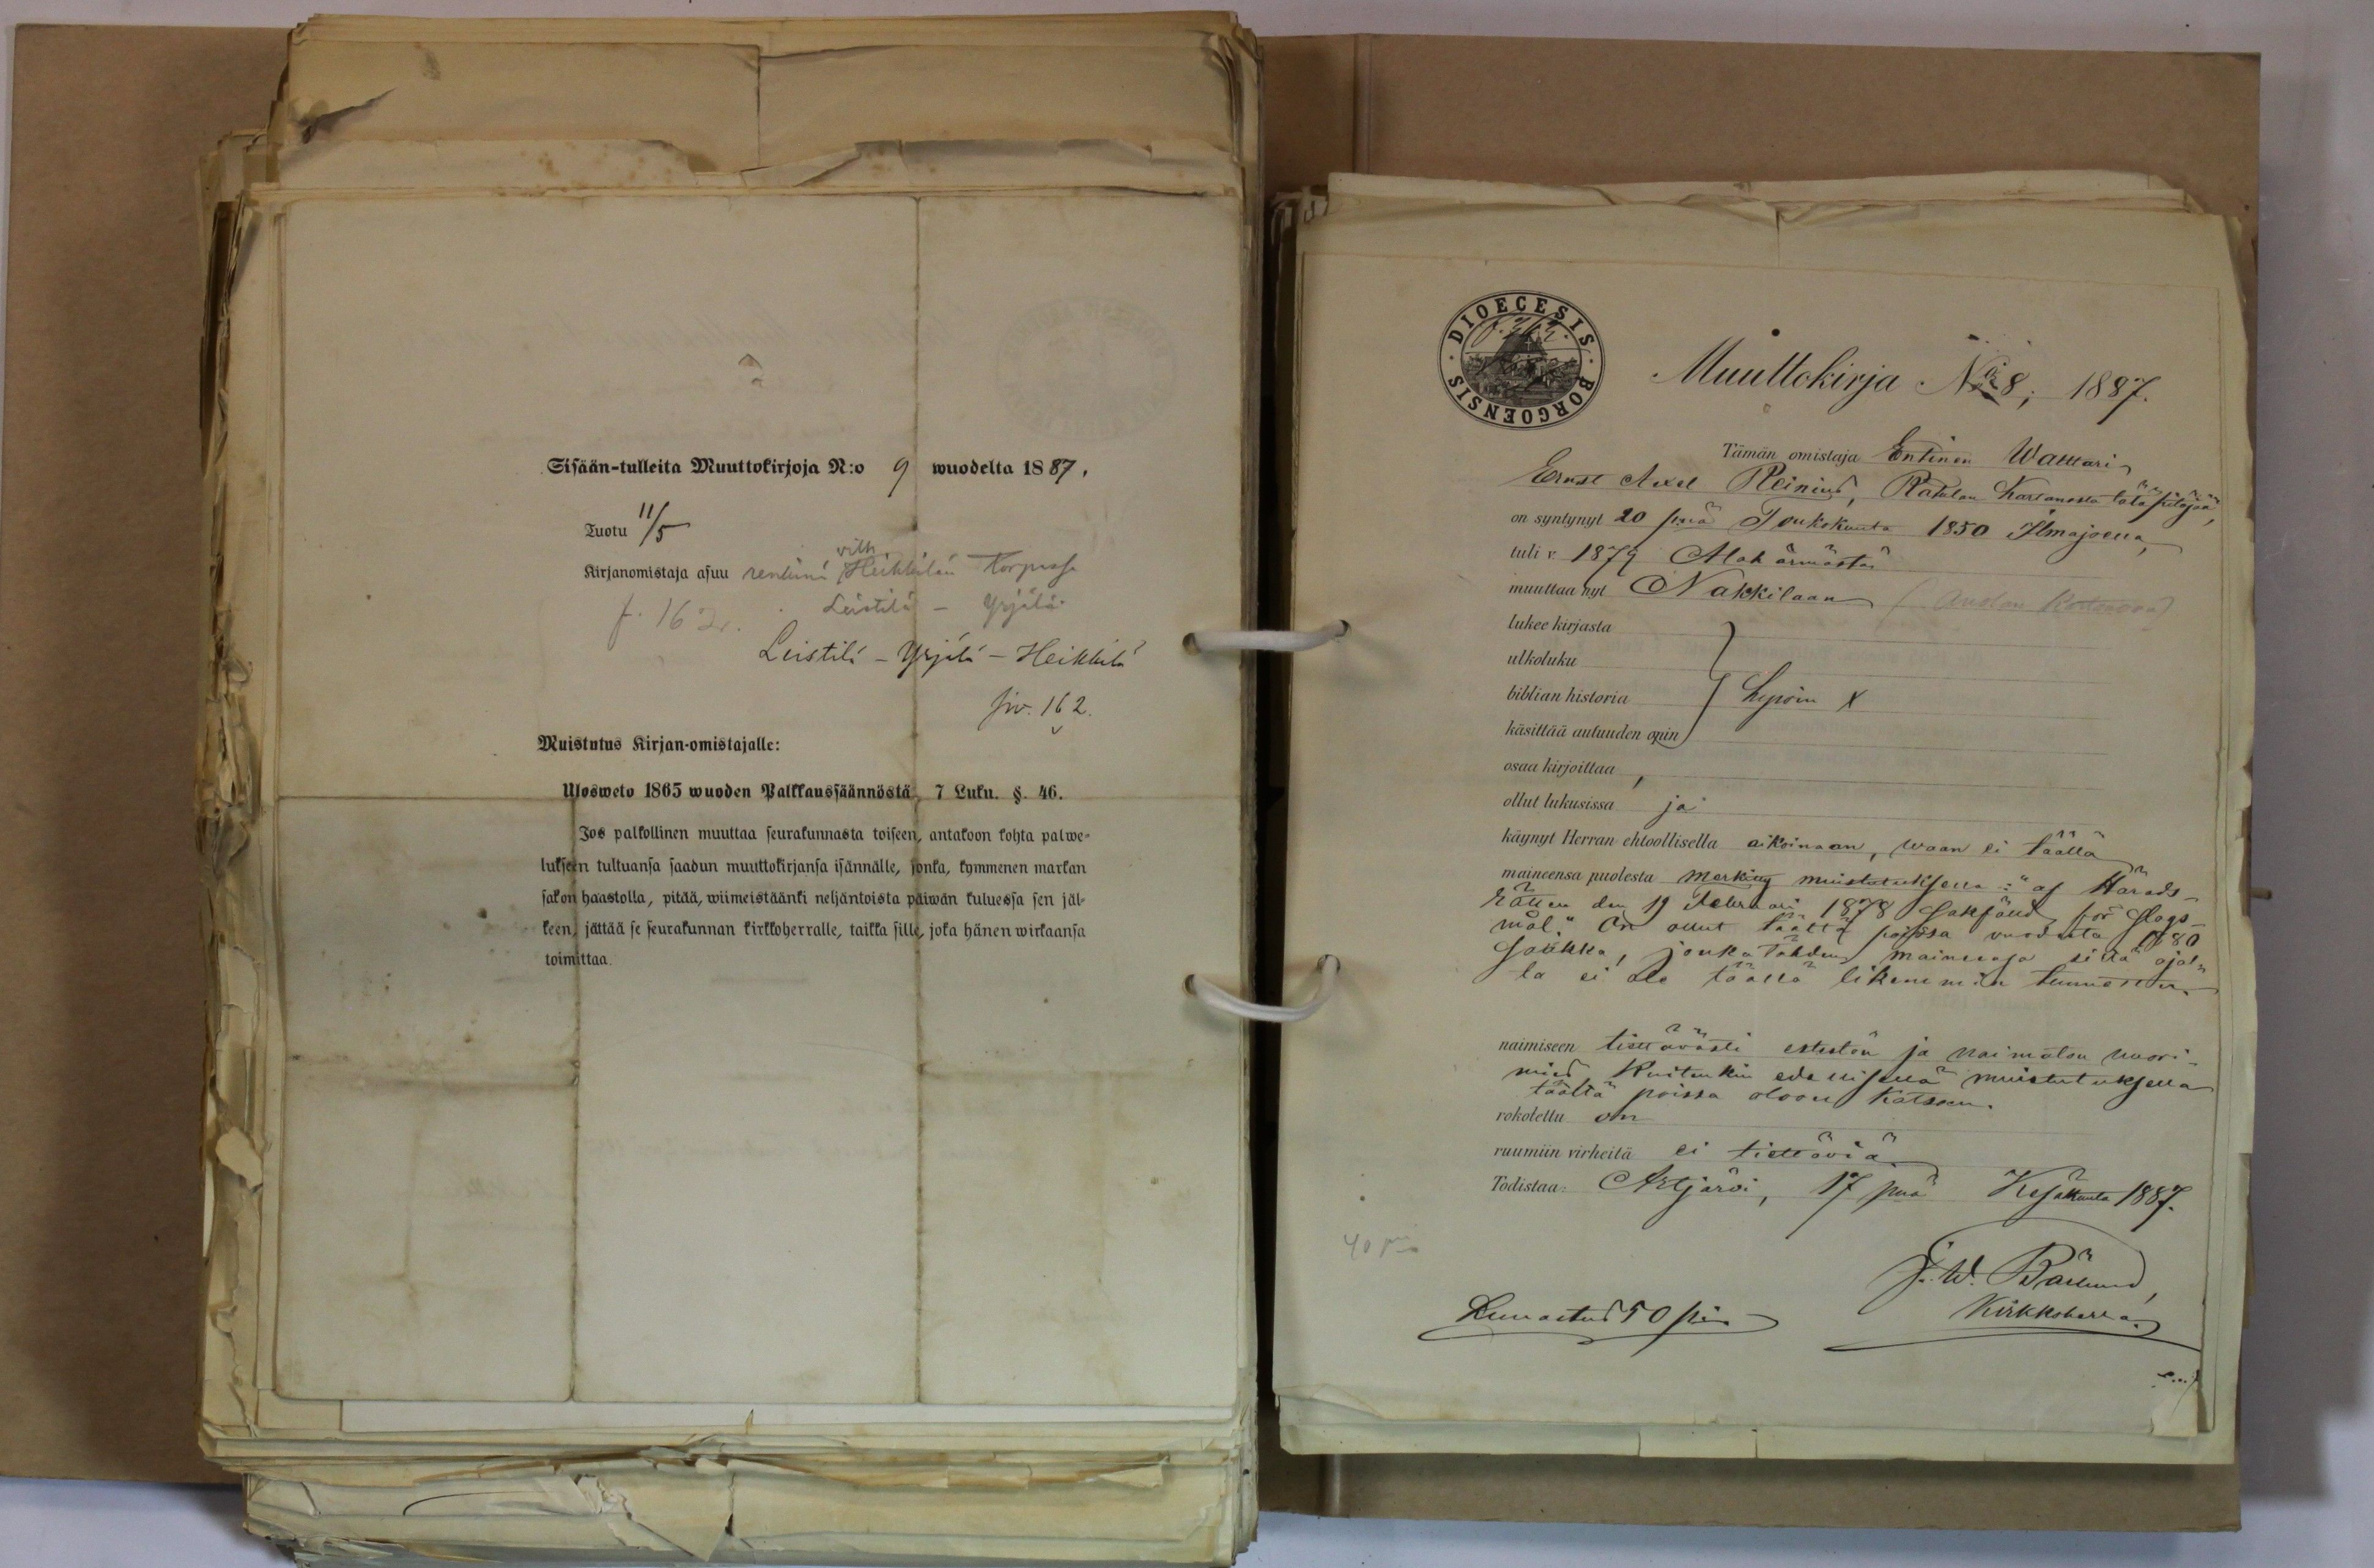 Sisään-tulleita Muuttokirjoja N:o 9 wuodelta 1887.
Tuotu 11/5
vilh.
Kirjanomistaja asuu renkinä Heikkilän Torpassa
f. 162. Leistilä - Yrjälä
Leistilä - Yrjälä - Heikkilä
siv. 162.
Muistutus Kirjan-omistajalle:
Ulosweto 1865 wuoden Palkkaussäännöstä, 7 Luku. §. 46.
Jos palkollinen muuttaa seurakunnasta toiseen, antakoon kohta palwe-
lukseen tultuansa saadun muuttokirjansa isännälle, jonka, kymmenen markan
sakon haastolla, pitää, wiimeistäänki neljäntoista päiwän kuluessa sen jäl-
keen, jättää se seurakunnan kirkkoherralle, taikka sille, joka hänen wirkaansa
toimittaa.
DIOECESIS BORGOENSIS
Muuttokirja No 8; 1887.
Tämän omistaja Entinen Walttari
Ernst Axel Reinius, Ratulan Kartanosta
on syntynyt 20 pnä Toukokuuta 1850 Ilmajoella,
tuli v. 1879 Alahärmästä
muuttaa nyt Nakkilaan
lukee kirjasta
ulkoluku
biblian historia
käsittää autuuden opin
osaa kirjoittaa
ollut lukusissa ja
käynyt Herran ehtoollisella aikoinaan, waan ei täällä
maineensa puolesta merkitty muistutuksella: "af Härads-
rätten den 19 Februari 1878 sakfälld för slags-
mål." On ollut täältä poissa vuodesta 1880
saakka, jonka tähden maineesa siltä ajal-
ta ei ole täällä likemmin tunnettu.
naimiseen tiettävästi esteetön ja naimaton nuori-
mies kuitenkin edellisellä muistutuksella
täältä poissa oloon katsoen.
rokotettu on
ruumiin virheitä ei tiettäviä
Todistaa: Artjärvi, 17 pnä Kesäkuuta 1887.
40 pn
Lunastus 50 pn
Kirkkoherra.